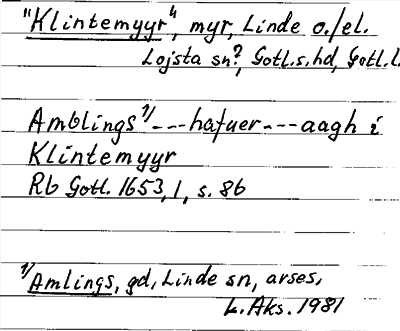 "Klintemyyr", myr, Linde o./el.
Lojsta sn?, Gotl.s.hd, Gotl.l.
Amblings 1) --- hafuer --- aagh i
Klintemyyr
Rb Gotl. 1653, 1, s. 86
1) Amlings, gd, Linde sn, arses,
L. Aks. 1981